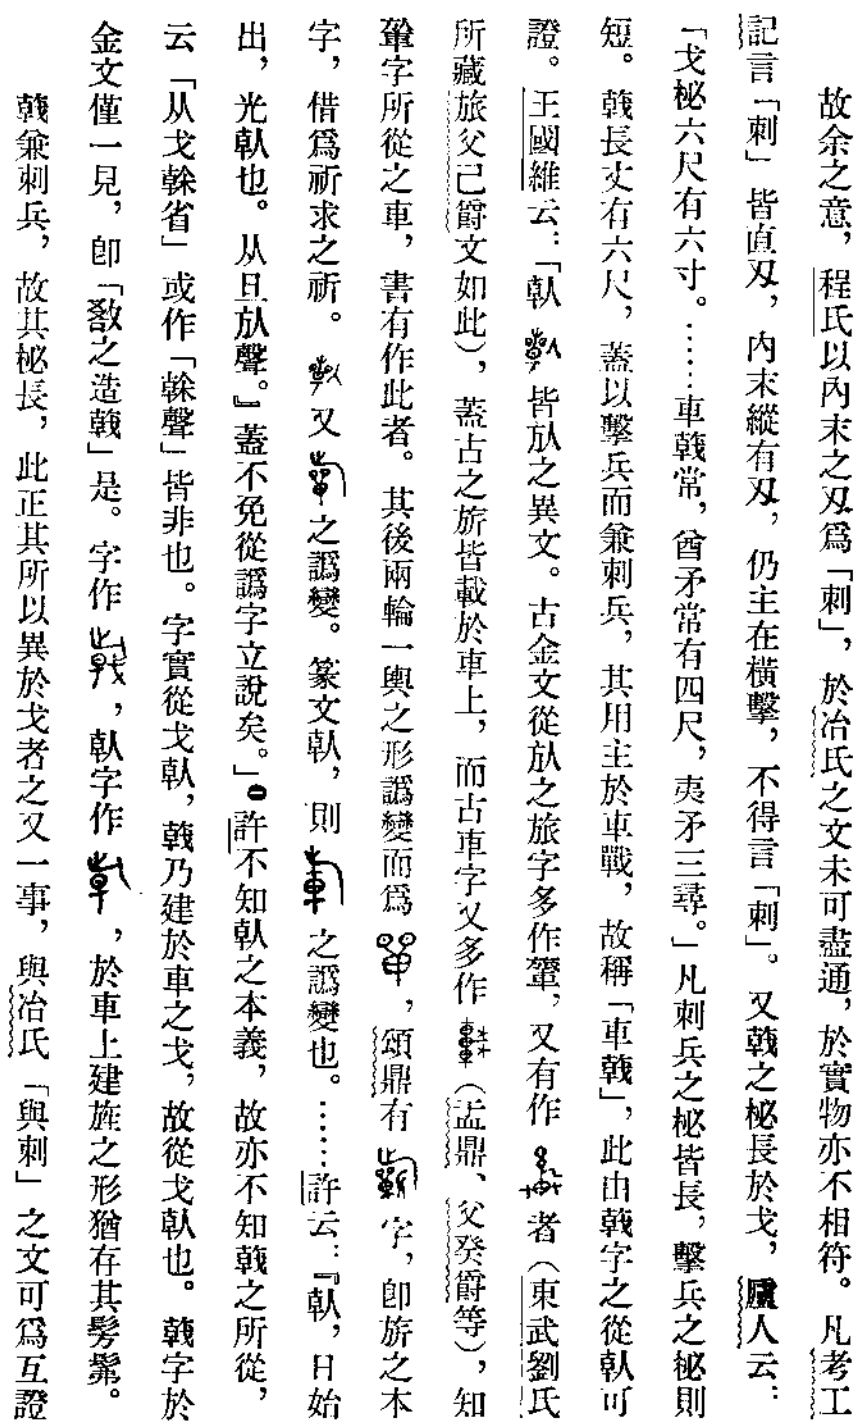 故余之意，程氏以內末之刄爲「刺」，於冶氏之文未可盡通，於實物亦不相符。凡考工
記言「刺」皆直刄，內末縱有刄，仍主在橫擊，不得言「刺」。又戟之柲長於戈，廬人云：
「戈柲六尺有六寸。……車戟常，酋矛常有四尺，夷矛三尋。」凡刺兵之柲皆長，擊兵之柲則
短。戟長丈有六尺，蓋以擊兵而兼刺兵，其用主於車戰，故稱「車戟」，此由戟字之從倝可
證。王國維云：「倝皆㫃之異文。古金文從㫃之旅字多作𨏊，又有作者（東武劉氏
所藏旅父己爵文如此），蓋古之旂皆載於車上，而古車字又多作（盂鼎、父癸爵等），知
𨏊字所從之車，書有作此者。其後兩輪一輿之形譌變而爲，頌鼎有字，卽旂之本
字，借爲祈求之祈。又之譌變。篆文倝，則之譌變也。……許云：『倝，日始
出，光倝也。从旦㫃聲。』蓋不免從譌字立說矣。」㊀許不知倝之本義，故亦不知戟之所從，
云「从戈榦省」或作「榦聲」皆非也。字實從戈倝，戟乃建於車之戈，故從戈倝也。戟字於
金文僅一見，卽「之造戟」是。字作，倝字作，於車上建旌之形猶存其髣髴。
戟兼刺兵，故其柲長，此正其所以異於戈者之又一事，與冶氏「與刺」之文可爲互證